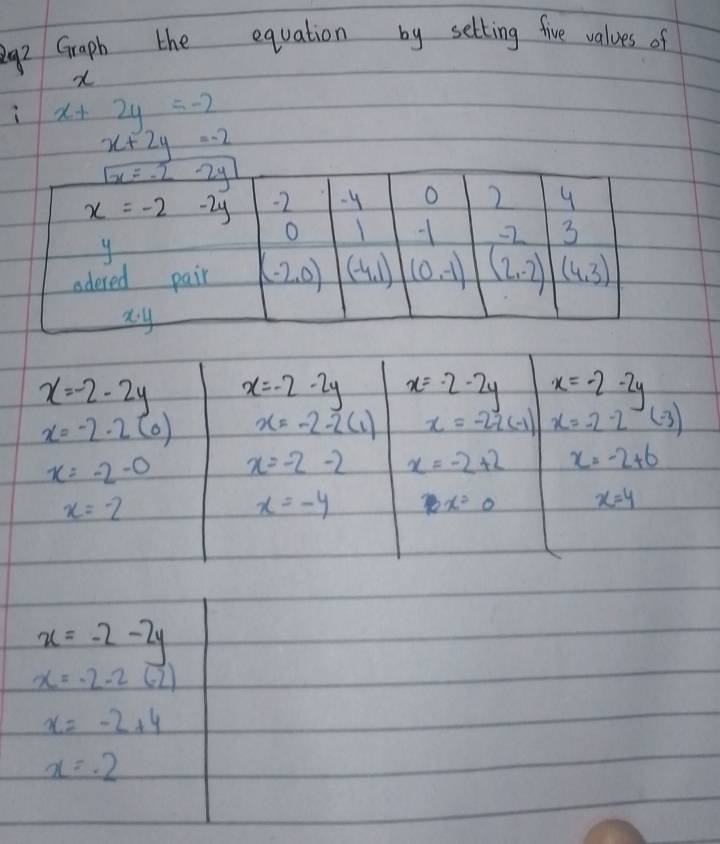 2q2 Graph the equation by setting five values of
x
i x+ 2y = -2
x+2y = -2
x = -2 -2y
x = -2 -2y -2 -4 0 2 4
y 0 1 -1 -2 3
odered pair (-2,0) (-4,1) (0,-1) (2,-2) (4,3)
x.y
x=-2-2y x=-2-2y x=-2-2y x=-2-2y
x=-2-2(0) x=-2-2(1) x=-22(-1) x=-2-2(-3)
x=-2-0 x=-2-2 x=-2+2 x=-2+6
x=-2 x=-4 x=0 x=4
x= -2-2y
x=-2-2(-2)
x= -2+4
x=-2